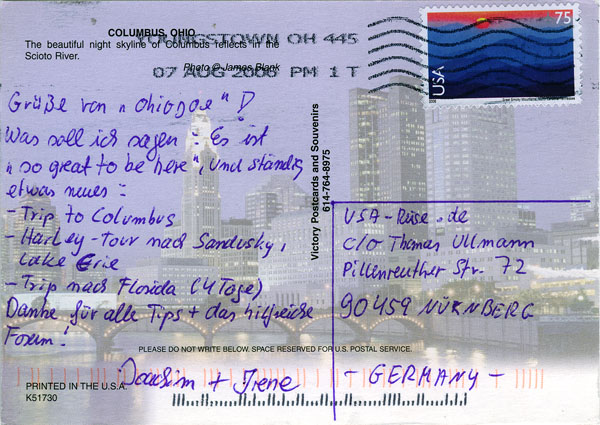 COLUMBUS, OHIO
The beautiful night skyline of Columbus reflects in the
Scioto River.
Photo @ James Blank
YOUNGSTOWN OH 445
07 AUG 2006 PM 1 T
75
USA
Grüße von "OhioJoe"!
Was soll ich sagen: Es ist
"so great to be here", und ständig
etwas neues:
- Trip to Columbus
- Harley-Tour nach Sandusky,
Lake Erie
- Trip nach Florida (4 Tage)
Danke für alle Tips + das hilfreiche
Forum!
Joachim + Irene
Victory Postcards and Souvenirs
614-764-8975
USA-Reise.de
c/o Thomas Ullmann
Pillenreuther Str. 72
90459 NÜRNBERG
- GERMANY -
PLEASE DO NOT WRITE BELOW. SPACE RESERVED FOR U.S. POSTAL SERVICE.
PRINTED IN THE U.S.A.
K51730